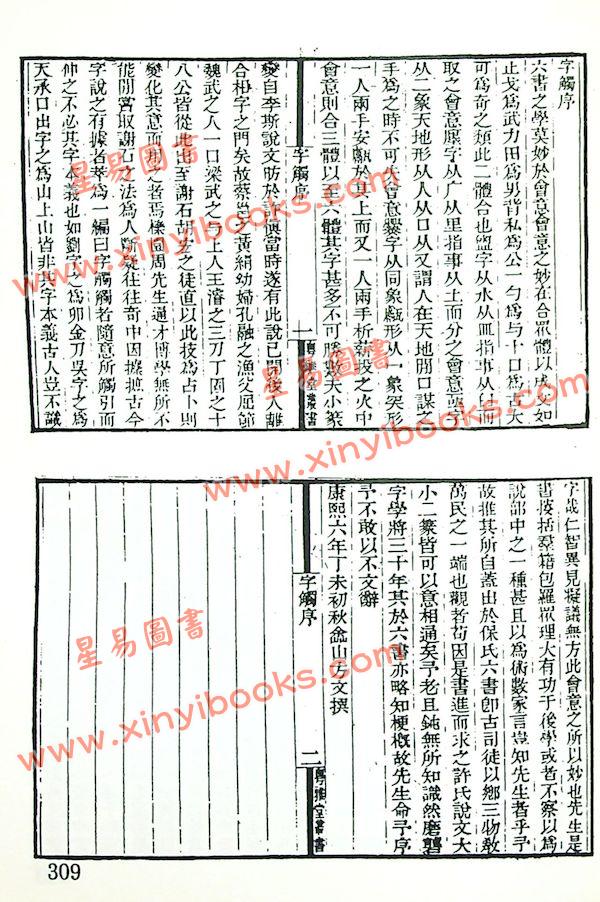 字觸序
六書之學莫妙於會意會意之妙在合眾體以成文如
止戈為武力田為男背私為公一勺為与十口為古大
可為奇之類此二體合也盥字从水从皿指事从臼而
取之會意廛字从广从里指事从土而分之會意
从二象天地形从人从口从又謂人在天地間口謀之
手為之時不可失會意爨字从同象甗形从一象突形
一人兩手安甗於其上而又一人兩手析薪投之火中
會意則合三體以至六體其字甚多不可勝數夫小篆
變自李斯說文昉於許慎當時遂有此說已開後人離
合相字之門矣故蔡邕之黃絹幼婦孔融之漁父屈節
魏武之人一口梁武之与上人王濬之三刀丁固之十
八公皆從此出至謝石胡宏之徒直以此技為占卜則
變化其意而用之者焉櫟園周先生通才博學無所不
能閒嘗取謝石之法為人斷疑往往奇中因摭拾古今
字說之有據者彙為一編曰字觸觸者隨意所觸引而
伸之不必其字本義也如劉字之為卯金刀吳字之為
天承口出字之為山上山皆非其字本義古人豈不識
字觸序
一
粵雅堂叢書
字哉仁智異見擬議無方此會意之所以妙也先生是
書接括羣籍包羅眾理大有功于後學或者不察以為
說部中之一種甚且以為術數家言豈知先生者乎予
故推其所自蓋出於保氏六書卽古司徒以鄉三物教
萬民之一端也觀者苟因是書進而求之許氏說文大
小二篆皆可以意相通矣予老且鈍無所知識然磨礱
字學將三十年其於六書亦略知梗概故先生命予序
予不敢以不文辭
康熙六年丁未初秋嵞山方文撰
字觸序
二
粵雅堂叢書
309
星易圖書
www.xinyibooks.com
星易圖書
www.xinyibooks.com
星易圖書
www.xinyibooks.com
星易圖書
www.xinyibooks.com